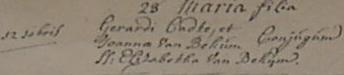 28 Maria filia
12 Xbris Gerardi Cadts, et
Joanna Van Bekum Conjugum
St. Elisabetha Van Bekum.